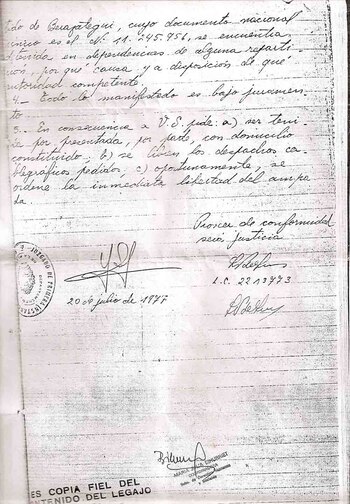 tido de Berazategui, cuyo documento nacional
único es el Nº 11.245.956, se encuentra
detenida en dependencias de alguna reparti-
ción, por qué causa y a disposición de qué
autoridad competente.
4.- Todo lo manifestado es bajo juramen-
to
5.- En consecuencia a V.S. pide: a) ser teni-
da por presentada, por parte, con domicilio
constituido, b) se libren los despachos ca-
blegráficos pedidos, c) oportunamente, se
ordene la inmediata libertad del ampa-
rada
Proveer de conformidad
será justicia
L.C. 2213773
20 de julio de 1977
JUZGADO DE PRIMERA INSTANCIA
ES COPIA FIEL DEL
CONTENIDO DEL LEGAJO